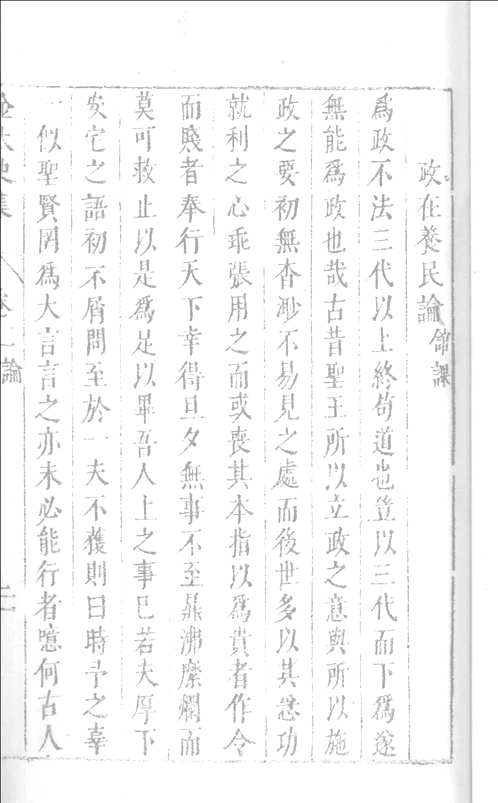 政在養民論 館課
為政不法三代以上終苟道也豈以三代而下為遂
無能為政也哉古昔聖王所以立政之意與所以施
政之要初無杳渺不易見之處而後世多以其急功
就利之心乖張用之而或喪其本指以為貴者作令
而賤者奉行天下幸得旦夕無事不至鼎沸糜爛而
莫可救止以是為足以畢吾人上之事已若夫厚下
安宅之語初不屑問至於一夫不獲則曰時予之辜
一似聖賢罔為大言言之亦未必能行者噫何古人
史集 卷二 論 二